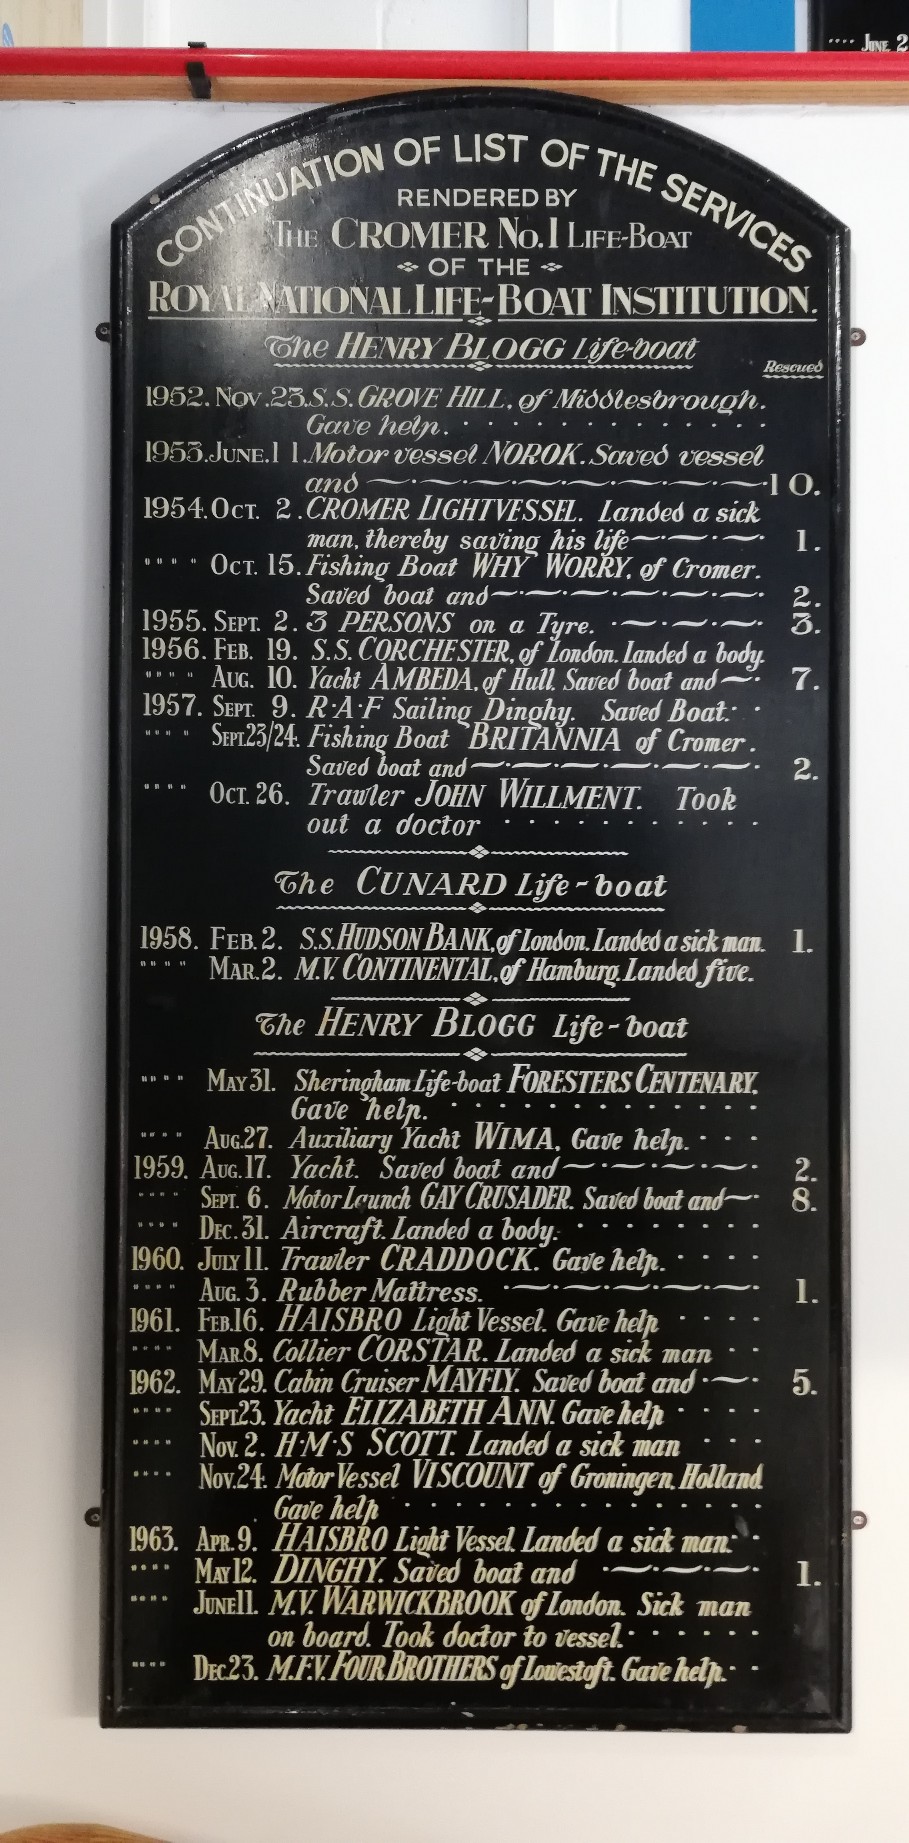 JUNE 2
CONTINUATION OF LIST OF THE SERVICES
RENDERED BY
THE CROMER No.1 LIFE-BOAT
OF THE
ROYAL NATIONAL LIFE-BOAT INSTITUTION.
The HENRY BLOGG Life-boat
Rescued
1952. Nov. 23. S.S. GROVE HILL, of Middlesbrough.
Gave help.
1953. JUNE. 11. Motor vessel NOROK. Saved vessel
and 10.
1954. OCT. 2. CROMER LIGHTVESSEL. Landed a sick
man, thereby saving his life 1.
" " " " OCT. 15. Fishing Boat WHY WORRY, of Cromer.
Saved boat and 2.
1955. SEPT. 2. 3 PERSONS on a Tyre. 3.
1956. FEB. 19. S.S. CORCHESTER, of London. Landed a body.
" " " " AUG. 10. Yacht AMBEDA, of Hull. Saved boat and 7.
1957. SEPT. 9. R·A·F Sailing Dinghy. Saved Boat.
" " " " SEPT. 23/24. Fishing Boat BRITANNIA of Cromer.
Saved boat and 2.
" " " " OCT. 26. Trawler JOHN WILLMENT. Took
out a doctor
The CUNARD Life-boat
1958. FEB. 2. S.S. HUDSON BANK, of London. Landed a sick man. 1.
" " " " MAR. 2. M.V. CONTINENTAL, of Hamburg. Landed five.
The HENRY BLOGG Life-boat
" " " " MAY 31. Sheringham Life-boat FORESTERS CENTENARY.
Gave help.
" " " " AUG. 27. Auxiliary Yacht WIMA, Gave help.
1959. AUG. 17. Yacht. Saved boat and 2.
" " " " SEPT. 6. Motor Launch GAY CRUSADER. Saved boat and 8.
" " " " DEC. 31. Aircraft. Landed a body.
1960. JULY 11. Trawler CRADDOCK. Gave help.
" " " " AUG. 3. Rubber Mattress. 1.
1961. FEB. 16. HAISBRO Light Vessel. Gave help
" " " " MAR. 8. Collier CORSTAR. Landed a sick man
1962. MAY 29. Cabin Cruiser MAYFLY. Saved boat and 5.
" " " " SEPT. 23. Yacht ELIZABETH ANN. Gave help
" " " " Nov. 2. H·M·S SCOTT. Landed a sick man
" " " " Nov. 24. Motor Vessel VISCOUNT of Groningen, Holland
Gave help
1963. APR. 9. HAISBRO Light Vessel. Landed a sick man.
" " " " MAY 12. DINGHY. Saved boat and 1.
" " " " JUNE 11. M.V. WARWICKBROOK of London. Sick man
on board. Took doctor to vessel.
" " " " DEC. 23. M.F.V. FOUR BROTHERS of Lowestoft. Gave help.